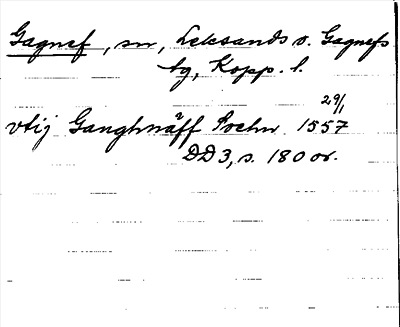 Gagnef, sn, Leksands o. Gagnefs
tg, Kopp. l.
29/1
vtij Ganghnäff Sochn 1557
DD3, s. 180 or.